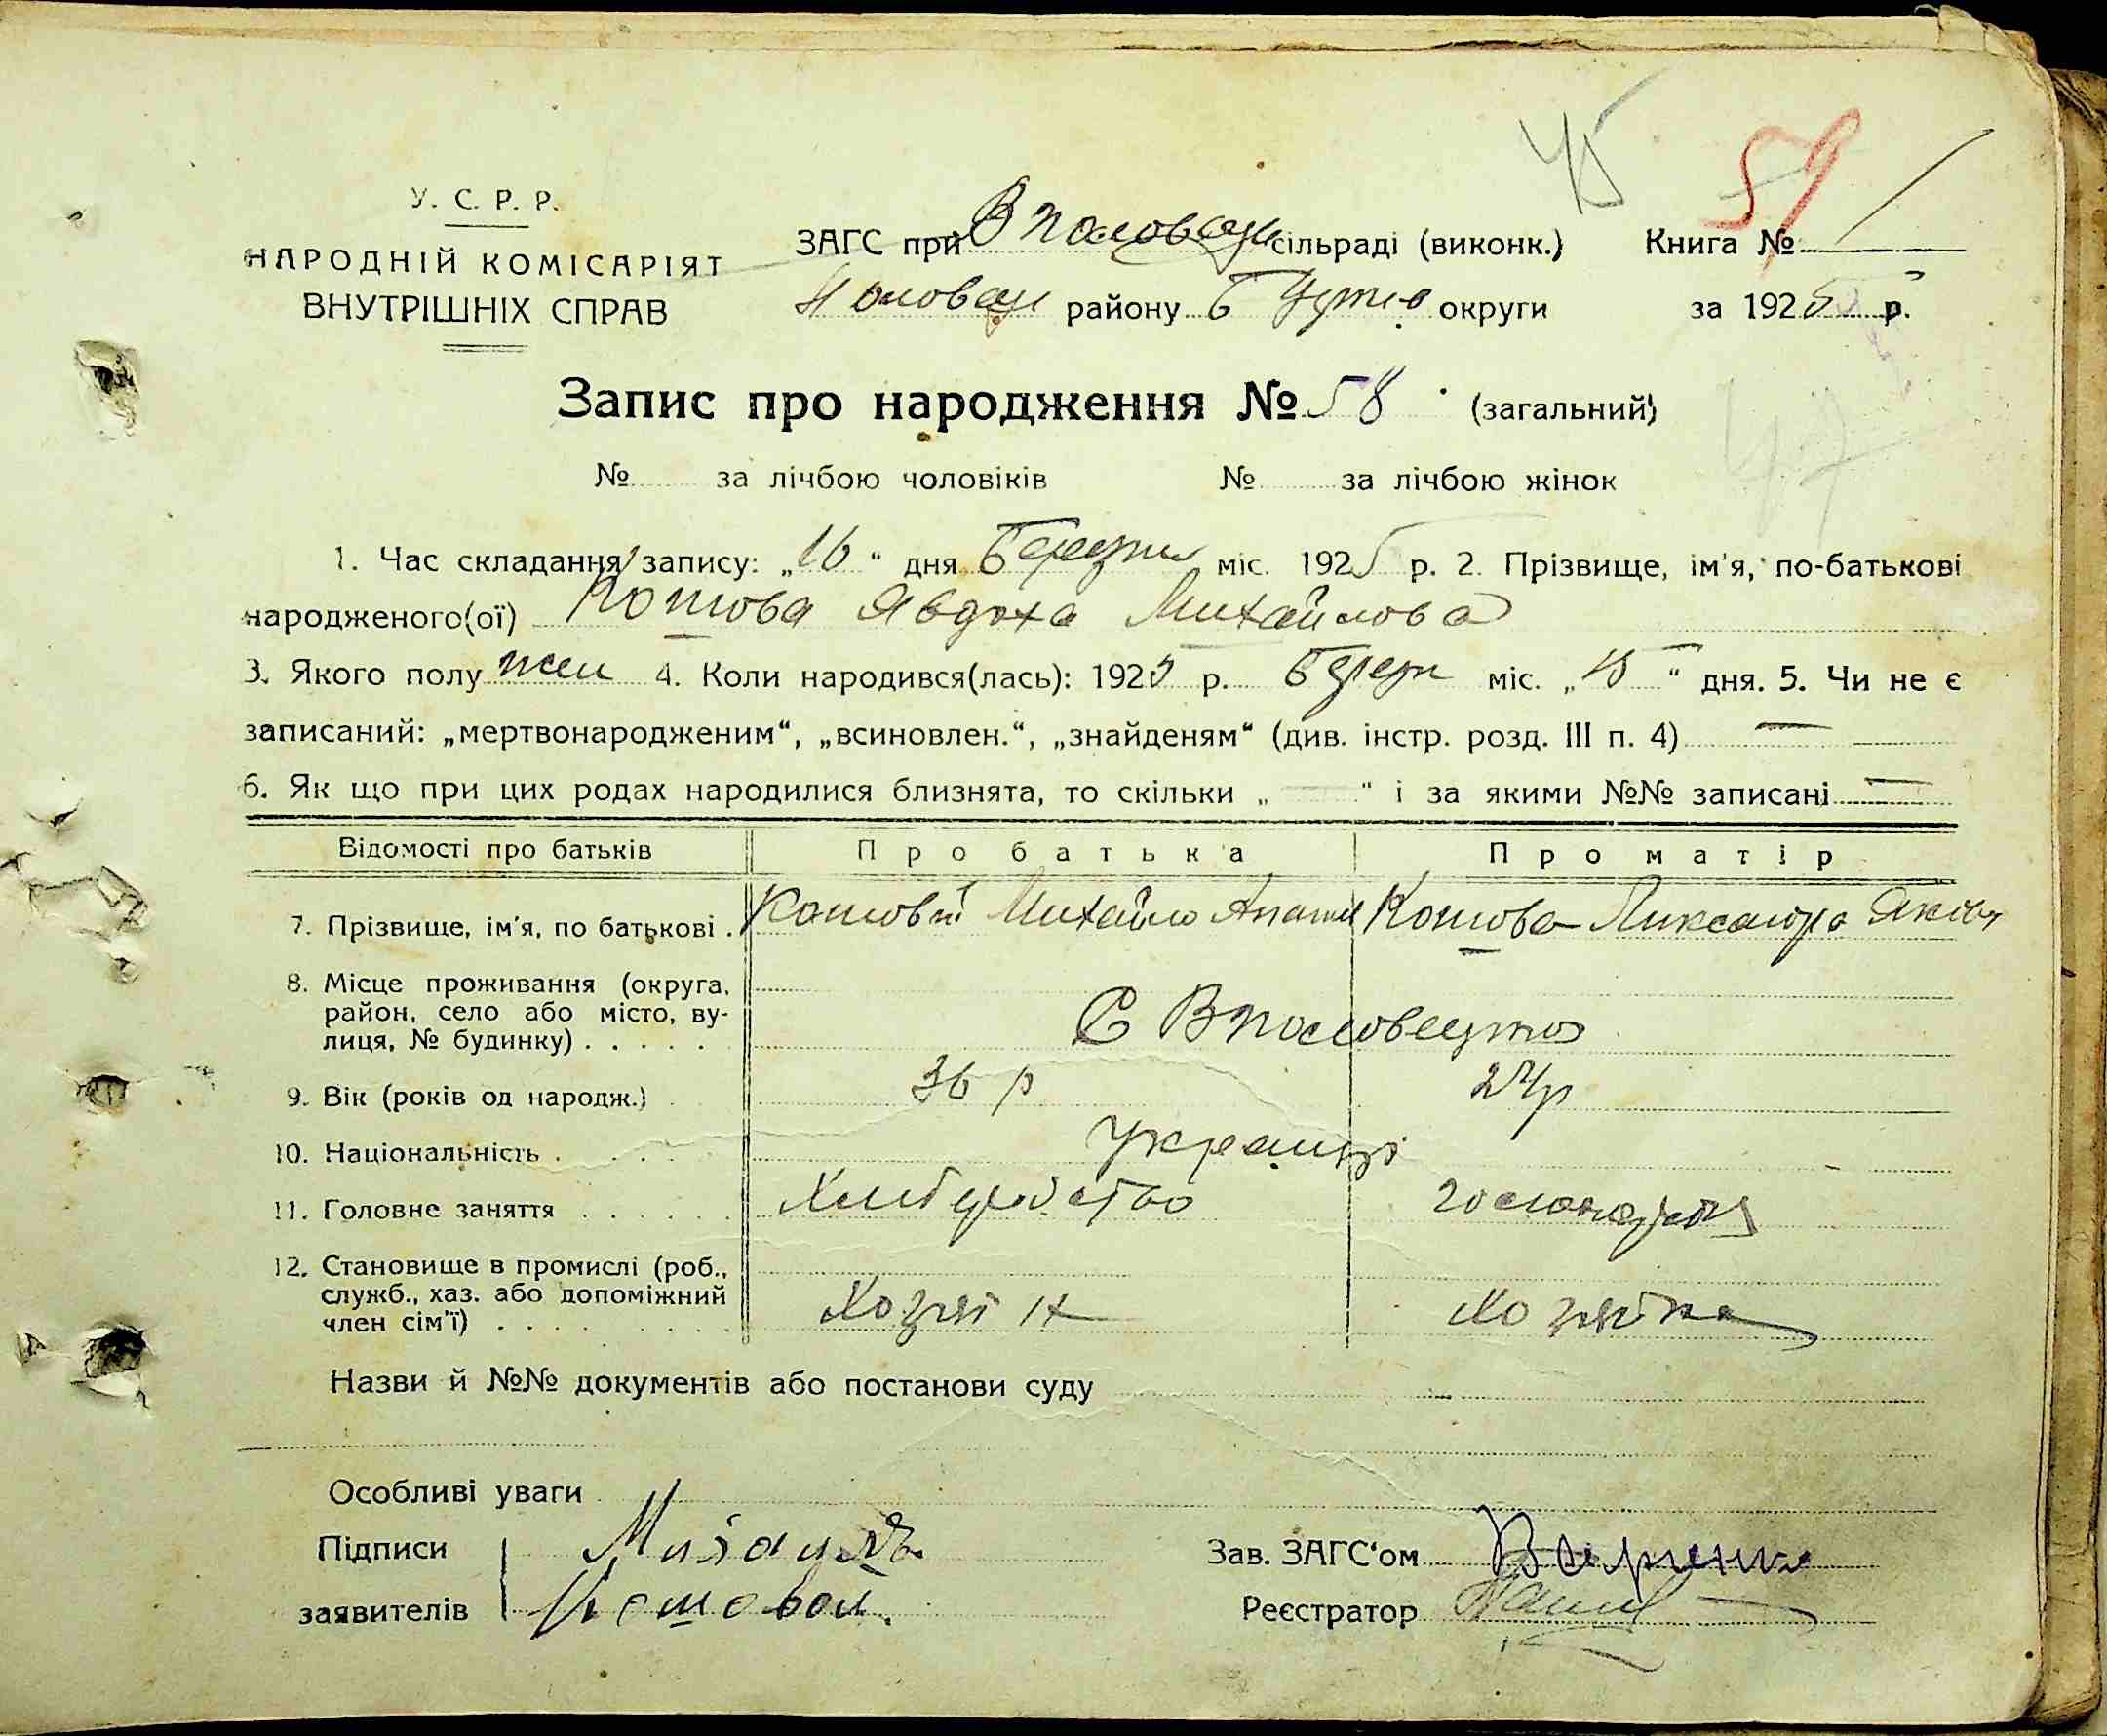 45 59
У. С. Р. Р.
НАРОДНІЙ КОМІСАРІЯТ
ВНУТРІШНІХ СПРАВ
ЗАГС при В Половец сільраді (виконк.) Книга № 1
Половец району Б Церкв округи за 1925 р.
Запис про народження № 58 (загальний)
№ за лічбою чоловіків № за лічбою жінок
47
1. Час складання запису: „16“ дня Березня міс. 1925 р. 2. Прізвище, ім'я, по-батькові
народженого(ої) Котова Явдоха Михайлова
3. Якого полу жен 4. Коли народився(лась): 1925 р. Березн міс. „15“ дня. 5. Чи не є
записаний: „мертвонародженим“, „всиновлен.“, „знайденям“ (див. інстр. розд. III п. 4) —
6. Як що при цих родах народилися близнята, то скільки „—“ і за якими №№ записані —
Відомості про батьків Про батька Про матір
7. Прізвище, ім'я, по батькові . Котовий Михайло Котова Яков
8. Місце проживання (округа,
район, село або місто, ву-
лиця, № будинку) . . . . . С В Половецьке
9. Вік (років од народж.) 36 р
10. Національність . . . . Українці
11. Головне заняття . . . . . . Хліборобство господарка
12. Становище в промислі (роб.,
служб., хаз. або допоміжний
член сім'ї) . . . . Хозяїн Хозяйка
Назви й №№ документів або постанови суду
Особливі уваги
Підписи Михаил Зав. ЗАГС'ом
заявителів Котовой. Реєстратор